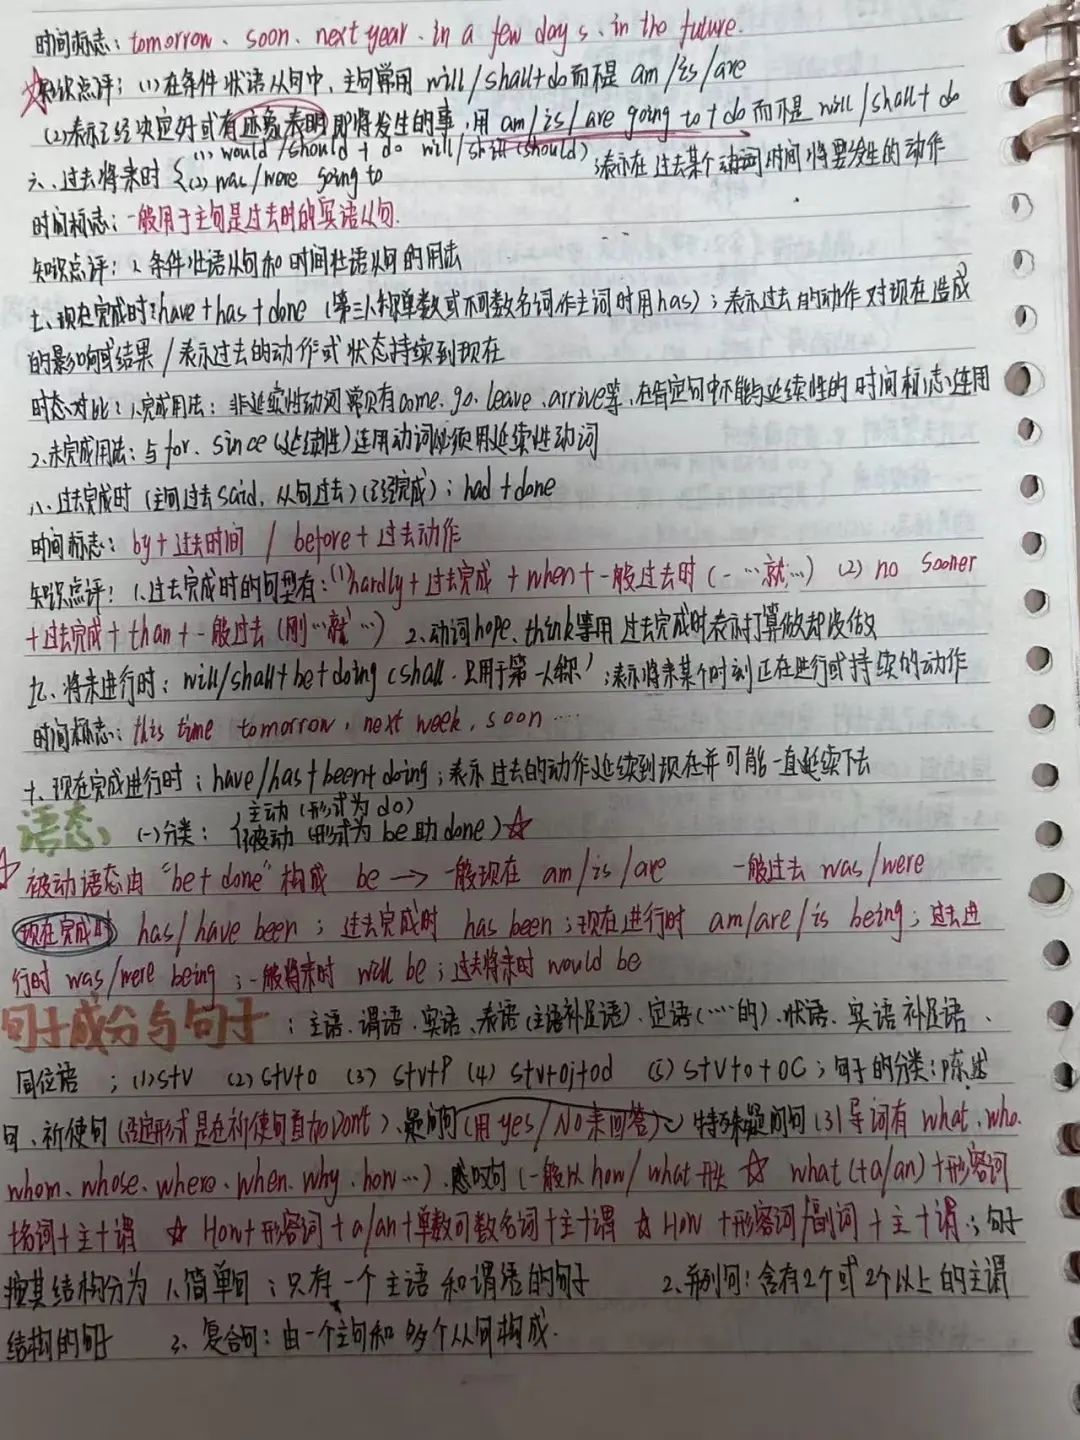 时间标志：tomorrow、soon、next year、in a few days、in the future.
☆知识点评：(1)在条件状语从句中，主句常用 will/shall+do而不是 am/is/are
(2)表示已经决定好或有迹象表明即将发生的事，用 am/is/are going to+do而不是 will/shall+do
六、过去将来时 {(1) would/should + do will/shall (should)
(2) was/were going to ；表示在过去某个时间将要发生的动作
时间标志：一般用于主句是过去时的宾语从句.
知识点评：条件状语从句和时间状语从句的用法
七、现在完成时：have+has+done (第三人称单数或不可数名词作主词时用has)；表示过去的动作对现在造成
的影响或结果/表示过去的动作或状态持续到现在
时态对比：1.完成用法：非延续性动词常见有come、go、leave、arrive等，在肯定句中不能与延续性的时间标志连用
2.未完成用法：与for、since(延续性)连用动词必须用延续性动词
八、过去完成时(主句过去said，从句过去)(已经完成)；had+done
时间标志：by+过去时间 / before+过去动作
知识点评：1.过去完成时的句型有：(1)hardly+过去完成+when+一般过去时(一…就…) (2) no sooner
+过去完成+than+一般过去(刚…就…) 2.动词hope、think等用过去完成时表示打算做却没做
九、将来进行时：will/shall+be+doing(shall 只用于第一人称)；表示将来某个时刻正在进行或持续的动作
时间标志：this time tomorrow，next week，soon……
十、现在完成进行时；have/has+been+doing；表示过去的动作延续到现在并可能一直延续下去
语态： (一)分类：{主动(形式为do)
被动(形式为be助done)☆
☆被动语态由"be+done"构成 be→一般现在 am/is/are 一般过去 was/were
现在完成时 has/have been；过去完成时 has been；现在进行时 am/are/is being；过去进
行时 was/were being；一般将来时 will be；过去将来时 would be
句子成分与句子：主语、谓语、宾语、表语(主语补足语)、定语(……的)、状语、宾语补足语、
同位语；(1)s+v (2)s+v+o (3) s+v+P (4) s+v+oj+od (5) s+v+o+oc；句子的分类：陈述
句、祈使句(否定形式是在祈使句首加Don't)、疑问句(用yes/No来回答)②特殊疑问句(3)导词有what、who、
whom、whose、where、when、why、how…)、感叹句(一般以how/what开头 ☆ what(+a/an)+形容词
+名词+主+谓 ☆ How+形容词+a/an+单数可数名词+主+谓 ☆ How +形容词/副词+主+谓；句子
按其结构分为 1.简单句；只有一个主语和谓语的句子 2.并列句：含有2个或2个以上的主谓
结构的句子 3.复合句：由一个主句和多个从句构成.